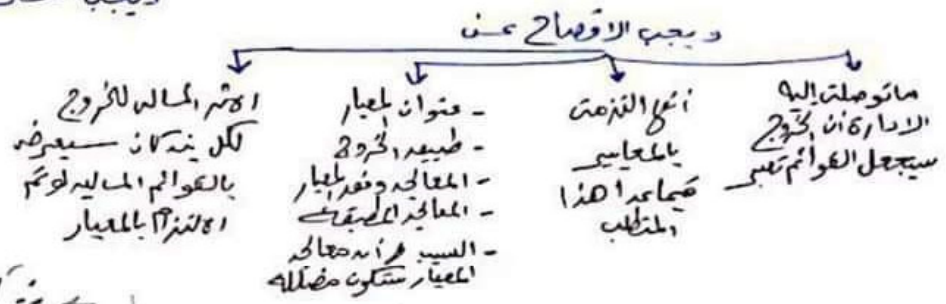 ويجب الافصاح عن
ماتوصلت إليه
الادارة أن الخروج
سيجعل القوائم تعبر
أنها التزمت
بالمعايير
فيما عدا هذا
المتطلب
- عنوان المعيار
- طبيعة الخروج
- المعالجة وفقا للمعيار
- المعالجة المطبقة
- السبب في أن معالجة
المعيار ستكون مضللة
الاثر المالى للخروج
لكل بند كان سيعرض
بالقوائم المالية لو تم
الالتزام بالمعيار